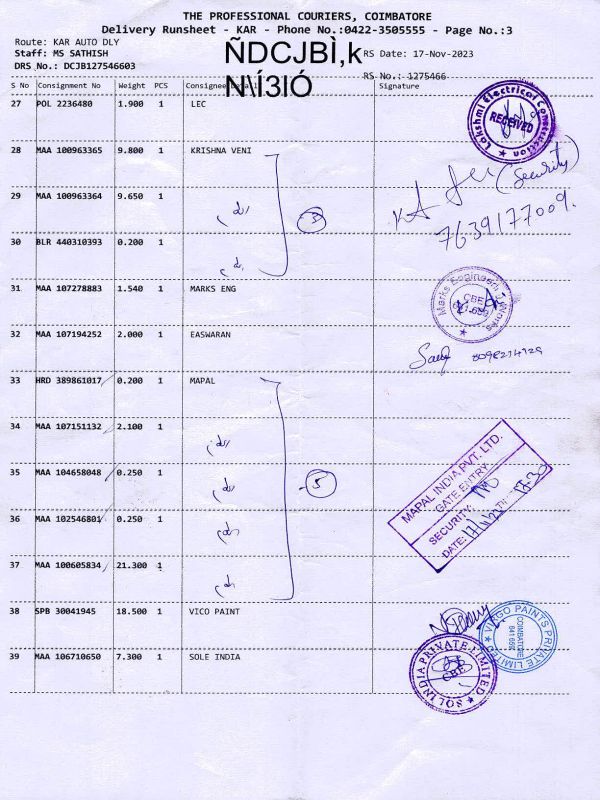 THE PROFESSIONAL COURIERS, COIMBATORE
Delivery Runsheet - KAR - Phone No.:0422-3505555 - Page No.:3
Route: KAR AUTO DLY
Staff: MS SATHISH
RS Date: 17-Nov-2023
DRS No.: DCJB127546603
RS No.: 1275466
ÑDCJBÌ‚k
N\Í3IÓ
S No Consignment No Weight PCS Consignee Signature
27 POL 2236480 1.900 1 LEC
Lakshmi Electrical RECEIVED
28 MAA 100963365 9.800 1 KRISHNA VENI
(Security)
29 MAA 100963364 9.650 1
3
7639177009.
30 BLR 440310393 0.200 1
31 MAA 107278883 1.540 1 MARKS ENG
Marks Engineering Works
CBE
32 MAA 107194252 2.000 1 EASWARAN
33 HRD 389861017 0.200 1 MAPAL
34 MAA 107151132 2.100 1
35 MAA 104658048 0.250 1
5
MAPAL INDIA PVT. LTD.
GATE ENTRY
SECURITY:
DATE:
36 MAA 102546801 0.250 1
37 MAA 100605834 21.300 1
38 SPB 30041945 18.500 1 VICO PAINT
PAINTS PRIVATE LIMITED
COIMBATORE
39 MAA 106710650 7.300 1 SOLE INDIA
SOLINDIA PRIVATE LIMITED
CBE